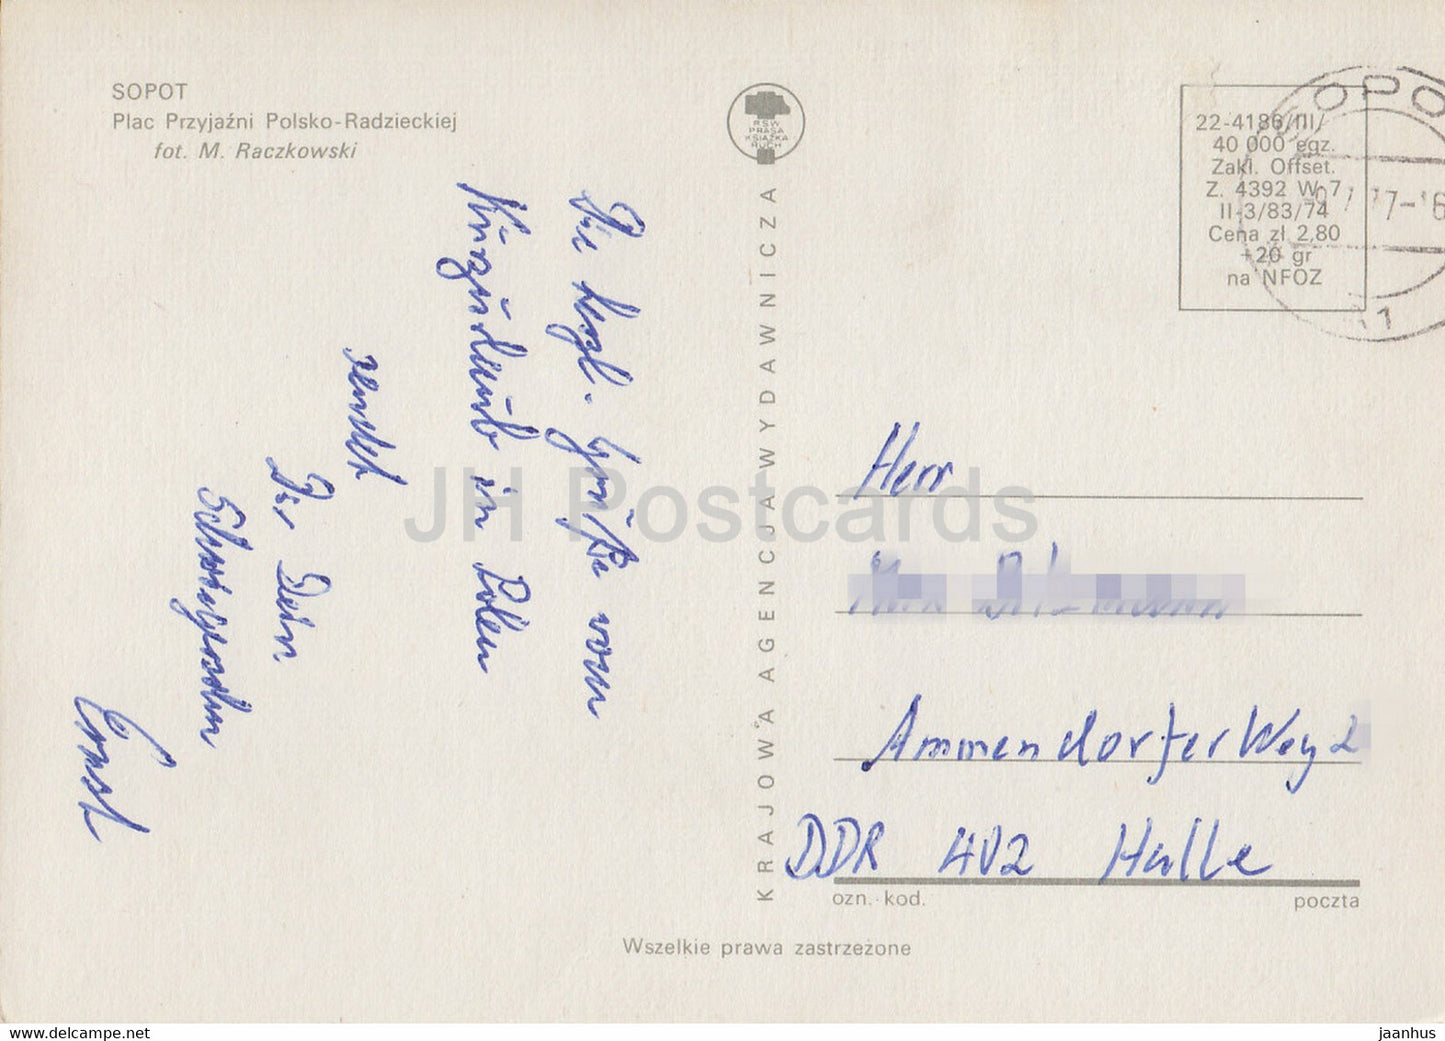 SOPOT
Plac Przyjaźni Polsko-Radzieckiej
fot. M. Raczkowski
RSW
PRASA
KSIĄŻKA
RUCH
22-4186/III/
40 000 egz.
Zakł. Offset.
Z. 4392 W-7
II-3/83/74
Cena zł 2,80
+20 gr
na NFOZ
OPO
7-16
1
Die herzl. Grüße vom
Kurzurlaub in Polen
sendet
Dir Dein
Schwiegersohn
Ernst
KRAJOWA AGENCJA WYDAWNICZA
Herr
Ammendorfer Weg 2
DDR 402 Halle
ozn. kod.
poczta
Wszelkie prawa zastrzeżone
JH Postcards
www.delcampe.net
jaanhus